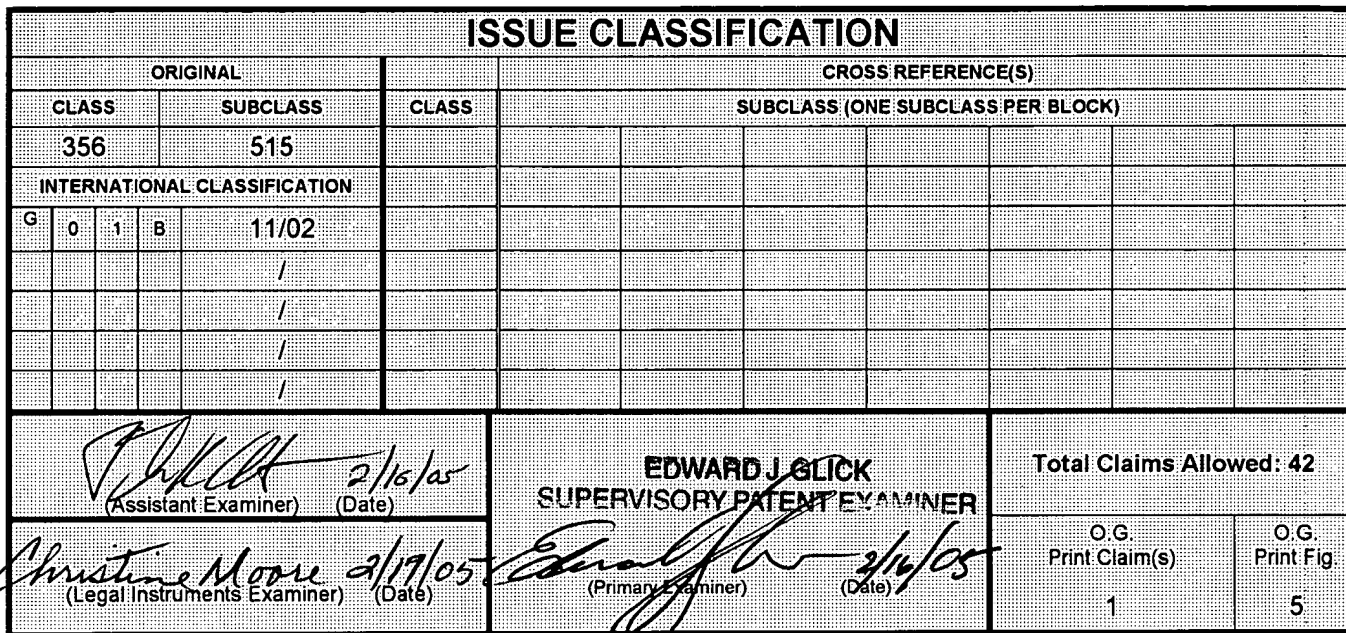 ISSUE CLASSIFICATION
ORIGINAL CROSS REFERENCE(S)
CLASS SUBCLASS CLASS SUBCLASS (ONE SUBCLASS PER BLOCK)
356 515
INTERNATIONAL CLASSIFICATION
G 0 1 B 11/02
/
/
/
/
2/16/05
(Assistant Examiner) (Date)
EDWARD J. GLICK
SUPERVISORY PATENT EXAMINER
2/16/05
(Primary Examiner) (Date)
Total Claims Allowed: 42
Christine Moore 2/19/05
(Legal Instruments Examiner) (Date)
O.G.
Print Claim(s)
1
O.G.
Print Fig.
5